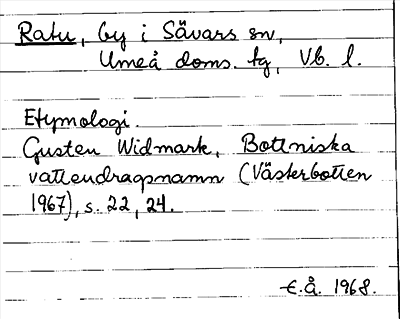 Ratu, by i Sävars sn,
Umeå doms. tg, Vb. l.
Etymologi.
Gusten Widmark, Bottniska
vattendragsnamn (Västerbotten
1967), s. 22, 24.
E.Å. 1968.